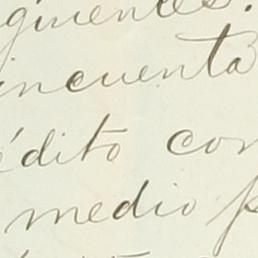 guientes.
incuenta
édito con
medio p